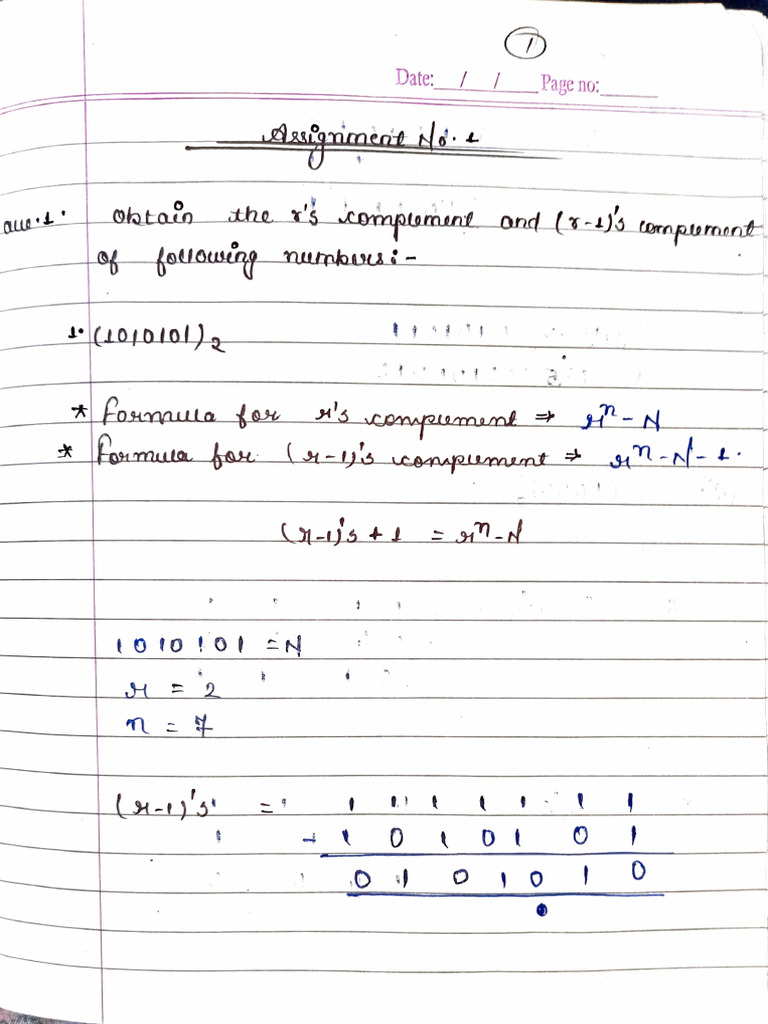 1
Date: / / Page no:
Assignment No. 1
Que.1. Obtain the r's complement and (r-1)'s complement
of following numbers:-
1. (1010101)2
* Formula for r's complement ⇒ r^n - N
* Formula for (r-1)'s complement ⇒ r^n - N - 1.
(r-1)'s + 1 = r^n - N
1010101 = N
r = 2
n = 7
(r-1)'s = 1 1 1 1 1 1 1
- 1 0 1 0 1 0 1
0 1 0 1 0 1 0